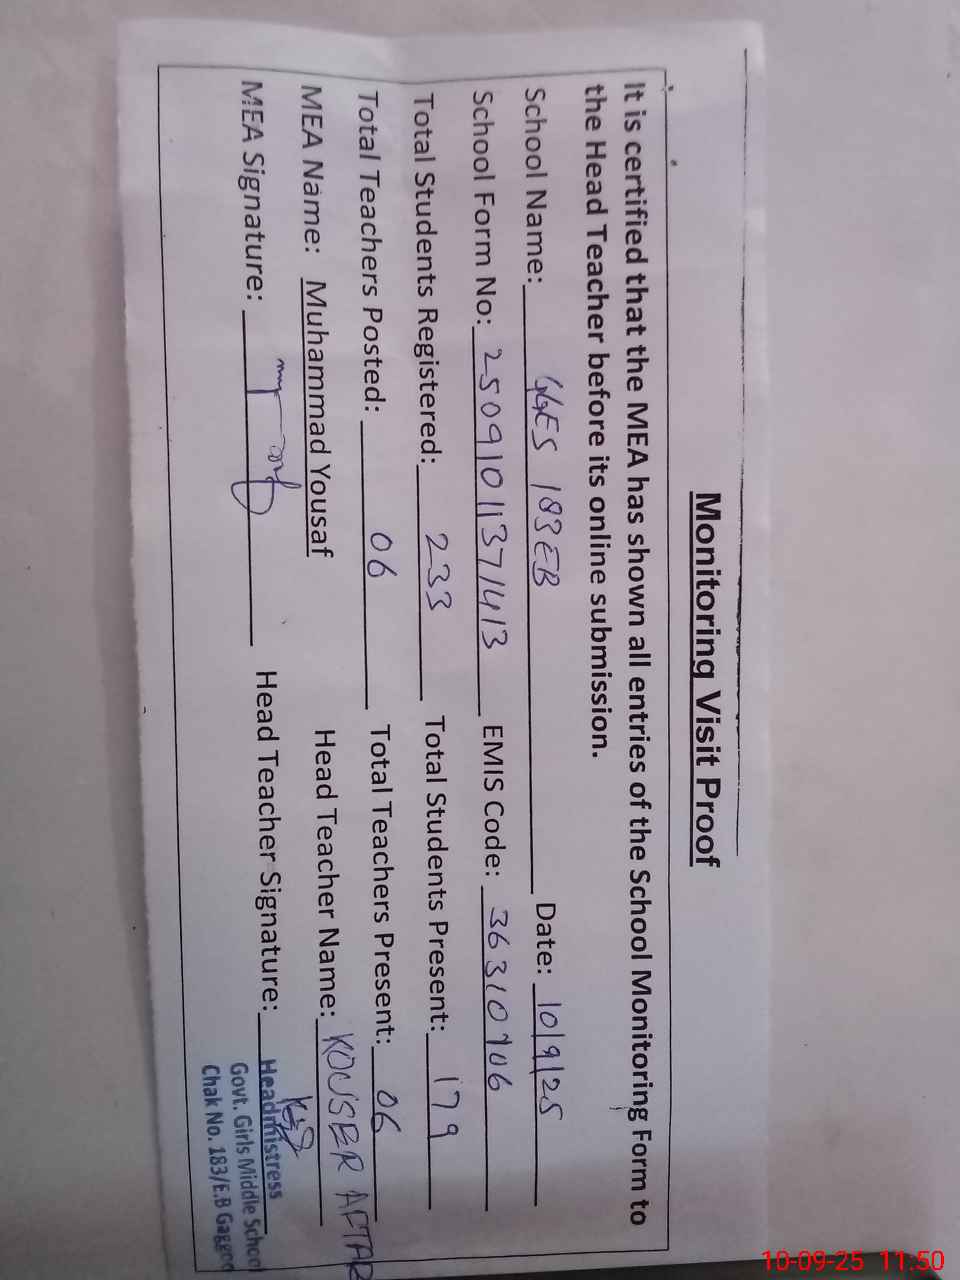 Monitoring Visit Proof
It is certified that the MEA has shown all entries of the School Monitoring Form to
the Head Teacher before its online submission.
School Name: GGES 183EB Date: 10/9/25
School Form No: 2509101371413 EMIS Code: 36310906
Total Students Registered: 233 Total Students Present: 179
Total Teachers Posted: 06 Total Teachers Present: 06
MEA Name: Muhammad Yousaf Head Teacher Name: KOUSER AFTAB
MEA Signature: Head Teacher Signature:
Headmistress
Govt. Girls Middle School
Chak No. 183/E.B
10-09-25 11:50